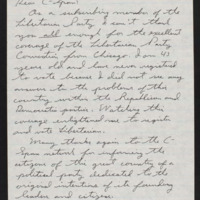 Dear C-Span:
As a subscribing member of the
Libertarian Party I can't thank
you all enough for the excellent
coverage of the Libertarian Party
Convention from Chicago. I am 43
years old and had never registered
to vote because I did not see any
answer to the problems of this
country within the Republican and
Democratic parties. Watching this
coverage enlightened me to register
and vote Libertarian.
Many thanks again to the C-
Span network for informing the
citizens of this great country of a
political party dedicated to the
original intentions of its founding
leaders and citizens.